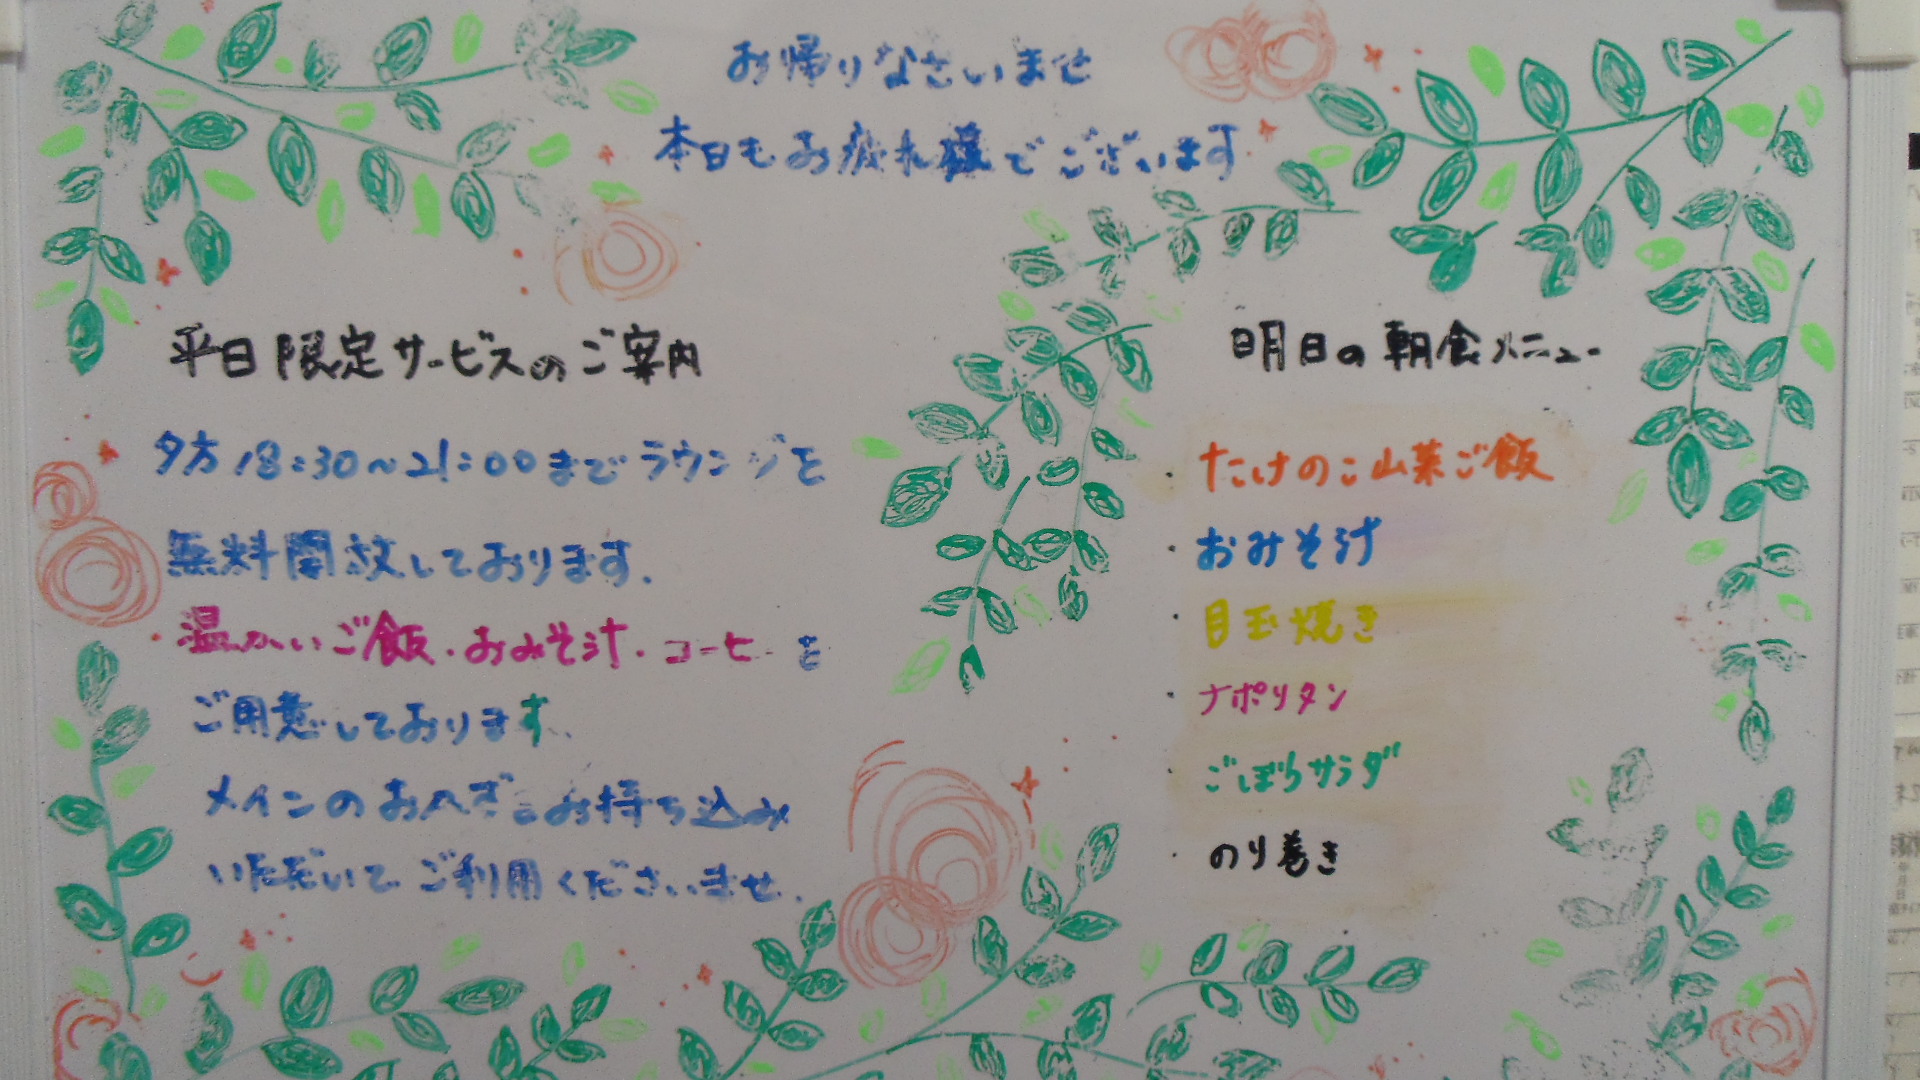 お帰りなさいませ
本日もお疲れ様でございます
平日限定サービスのご案内
夕方18:30～21:00までラウンジを
無料開放しております.
温かいご飯・おみそ汁・コーヒーを
ご用意しております.
メインのおかずをお持ち込み
いただいてご利用くださいませ.
明日の朝食メニュー
・たけのこ山菜ご飯
・おみそ汁
・目玉焼き
・ナポリタン
・ごぼうサラダ
・のり巻き